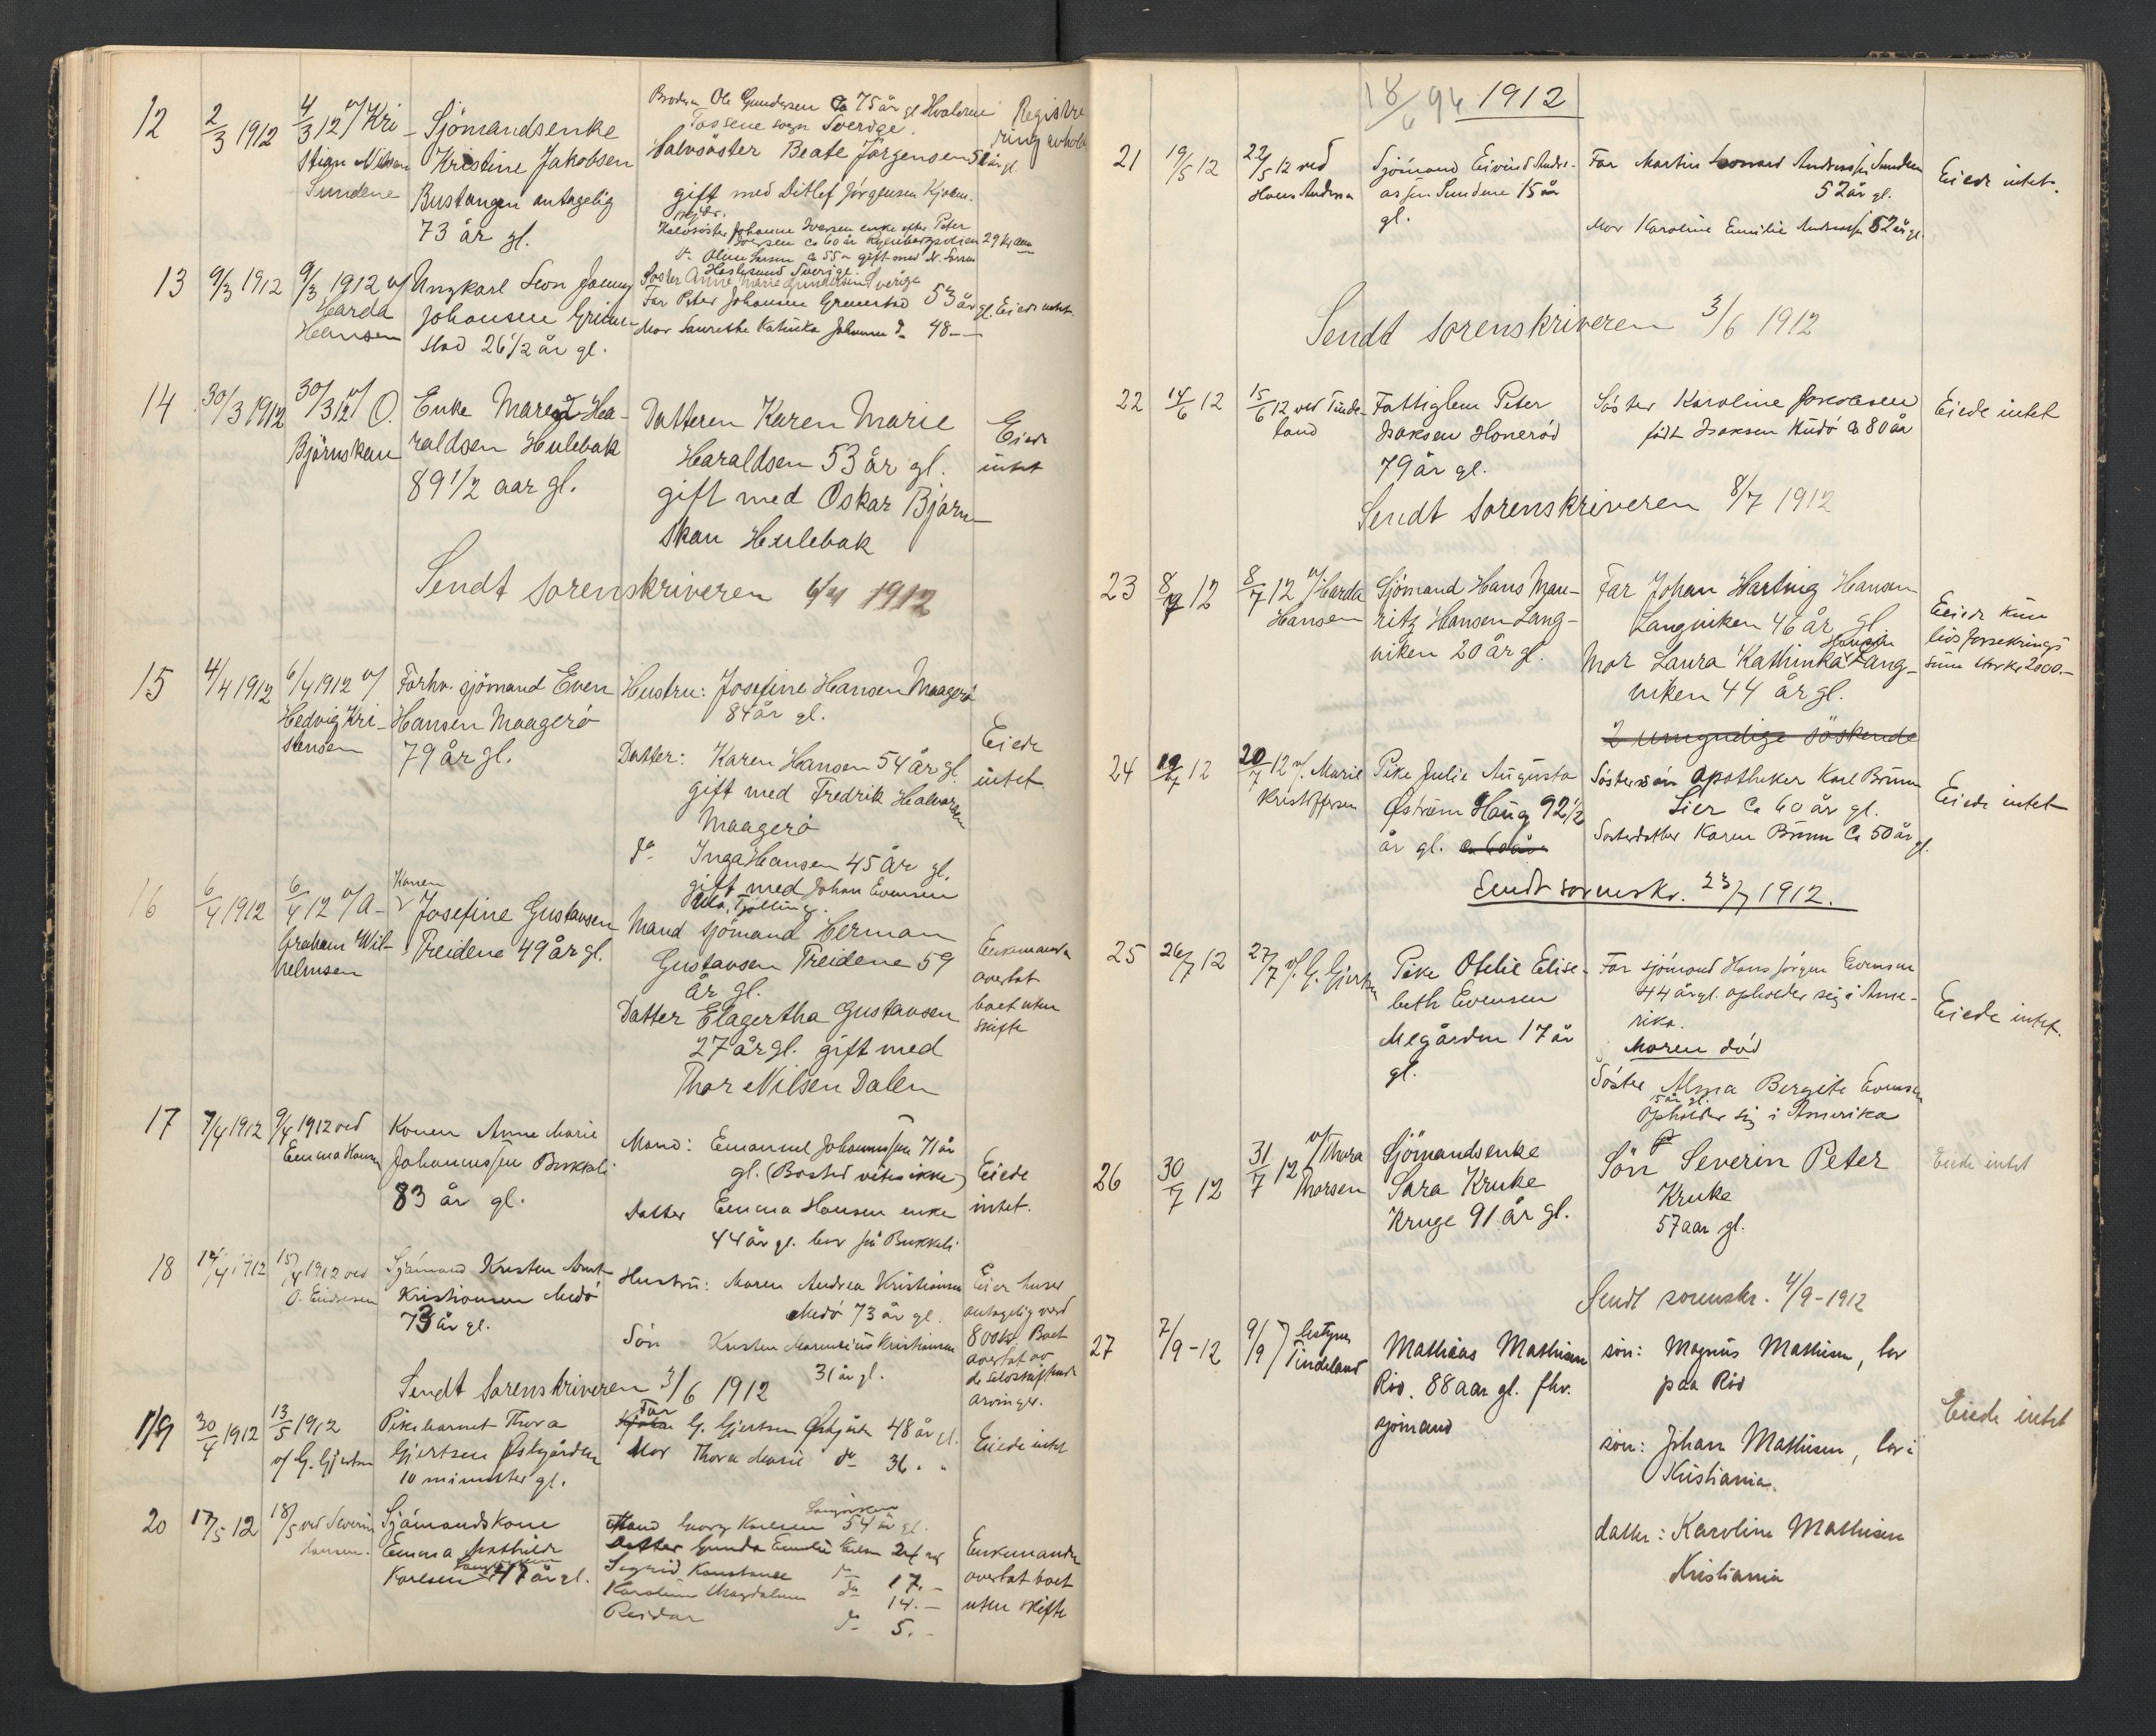 12
2/3 1912
4/3 12 v/ Kri-
stian Nilsen
Sundene
Sjömandsenke
Kristine Jakobsen
Bustangen antagelig
73 år gl.
Broderen Ole Gundersen Ca 75 år gl
Tossene sogn Sverige.
Halvsöster Beate Jörgensen 51 år gl.
gift med Ditlef Jörgensen
Halvsöster Johanne Iversen enke efter Peter
Iversen Ca 60 år
do Oline Larsen Ca 55 år gift med N. Larsen
Sverige.
Söster Anne Marie Gundersen Sverige
Registre
ring avhold
13
9/3 1912
9/3 1912 v/
Harda
Hansen
Ungkarl Leon Jacmy
Johansen Grim-
stad 26 1/2 år gl.
Far Peter Johansen Grimestad 53 år gl.
Mor Laurethe Katinka Johansen do 48 —
Eiede intet
14
30/3 1912
30/3 12 v/ O.
Björnskau
Enke Maren Ha-
raldsen Hulebak
89 1/2 aar gl.
Datteren Karen Marie
Haraldsen 53 år gl.
gift med Oskar Björn-
skau Hulebak
Eiede
intet
Sendt sorenskriveren 6/4 1912
15
4/4 1912
6/4 1912 v/
Hedvig Kri-
stensen
Forhv. sjömand Even
Hansen Maagerö
79 år gl.
Hustru: Josefine Hansen Maagerö
84 år gl.
Datter: Karen Hansen 54 år gl.
gift med Fredrik Halvorsen
Maagerö
do Inga Hansen 45 år gl.
gift med Johan Evensen
Ula, Tjölling.
Eiede
intet
16
6/4 1912
6/4 12 v/ A-
braham Wil-
helmsen
Konen
Josefine Gustavsen
Treidene 49 år gl.
Mand sjömand Herman
Gustavsen Treidene 59
år gl.
Datter Elagertha Gustavsen
27 år gl. gift med
Thor Nilsen Dalen
Enkemanden
overtat
boet uten
skifte
17
7/4 1912
9/4 1912 ved
Emma Hansen
Konen Anne Marie
Johannessen Bukkeli
83 år gl.
Mand: Emanuel Johannessen 71 år
gl. (Bosted vites ikke)
Datter Emma Hansen enke
44 år gl. bor på Bukkeli
Eiede
intet.
18
14/4 1912
15/4 1912 ved
O. Eivdsen
Sjömand Kristen Arnt
Kristiansen Medö
73 år gl.
Hustru: Maren Andrea Kristiansen
Medö 73 år gl.
Sön Kristen Marensius Kristiansen
31 år gl.
Eier huset
antagelig verd
800 kr Boet
overtat av
de selvskiftende
arvinger.
Sendt Sorenskriveren 3/6 1912
19
30/4 1912
13/5 1912
v/ G. Gjertsen
Pikebarnet Thora
Gjertsen Østgården
10 minutter gl.
Far G. Gjertsen Østgården 48 år gl.
Mor Thora Marie do 36 . "
Eiede intet
20
17/5 12
18/5 ved Severin
Hansen.
Sjömandskone
Emma Mathilde
Karlsen Langviken 47 år gl.
Langviken
Mand Georg Karlsen 54 år gl.
Datter Gunda Emilie Karlsen 24 år
Sigrid Konstanse do 17. —
Karoline Magdalene do 14. —
Reidar do 5. —
Enkemanden
overtat boet
uten skifte
18/6 94 1912
21
19/5 12
22/5 12 ved
Hans Andersen
Sjömand Eivind Andre-
assen Sundene 15 år
gl.
Far Martin Leonard Andreassen Sundene
52 år gl.
Mor Karoline Emilie Andreassen 52 år gl.
Eiede intet.
Sendt sorenskriveren 3/6 1912
22
14/6 12
15/6 12 ved Tinde-
land
Fattiglem Peter
Isaksen Honeröd
79 år gl.
Söster Karoline Jakobsen
född Isaksen Hudö Ca 80 år
Eiede intet
Sendt Sorenskriveren 8/7 1912
23
8/7 12
8/7 12 v/ Harda
Hansen
Sjömand Hans Mau-
ritz Hansen Lang-
viken 20 år gl.
Far Johan Hartvig Hansen
Langviken 46 år gl
Mor Laura Kathinka Hansen Lang-
viken 44 år gl.
2 umyndige söskende
Eiede kun
livsforsekrings
sum stor kr 2000.—
24
19/7 12
20/7 12 v/. Marie
Kristoffersen
Pike Julie Augusta
Østrøm Haug 92 1/2
år gl.
Söstersön Apotheker Karl Brunn
Lier Ca 60 år gl.
Sösterdatter Karen Brunn Ca 50 år gl.
Eiede intet
Sendt sorenskr. 23/7 1912.
25
26/7 12
27/7 v/. G. Gjertsen
Pike Otelie Elise-
beth Evensen
Megården 17 år
gl.
Far sjömand Hans Jörgen Evensen
44 år gl. opholder sig i Ame-
rika.
Moren död
Söster Alma Bergite Evensen
15 år gl.
Opholder sig i Amerika
Eiede intet.
26
30/7 12
31/7 12 v/ Thora
Thorsen
Sjömandsenke
Sara Kruke
Kruge 91 år gl.
Sön Severin Peter
Kruke
57 aar gl.
Eiede intet
Sendt sorenskr. 4/9-1912
27
7/9-12
9/9 / bestyrer
Tindeland
Mathias Mathisen
Röd. 88 aar gl. fhv.
sjömand
sön: Magnus Mathisen, bor
paa Röd
sön: Johan Mathisen, bor i
Kristiania.
datter: Karoline Mathisen
Kristiania
Eiede intet